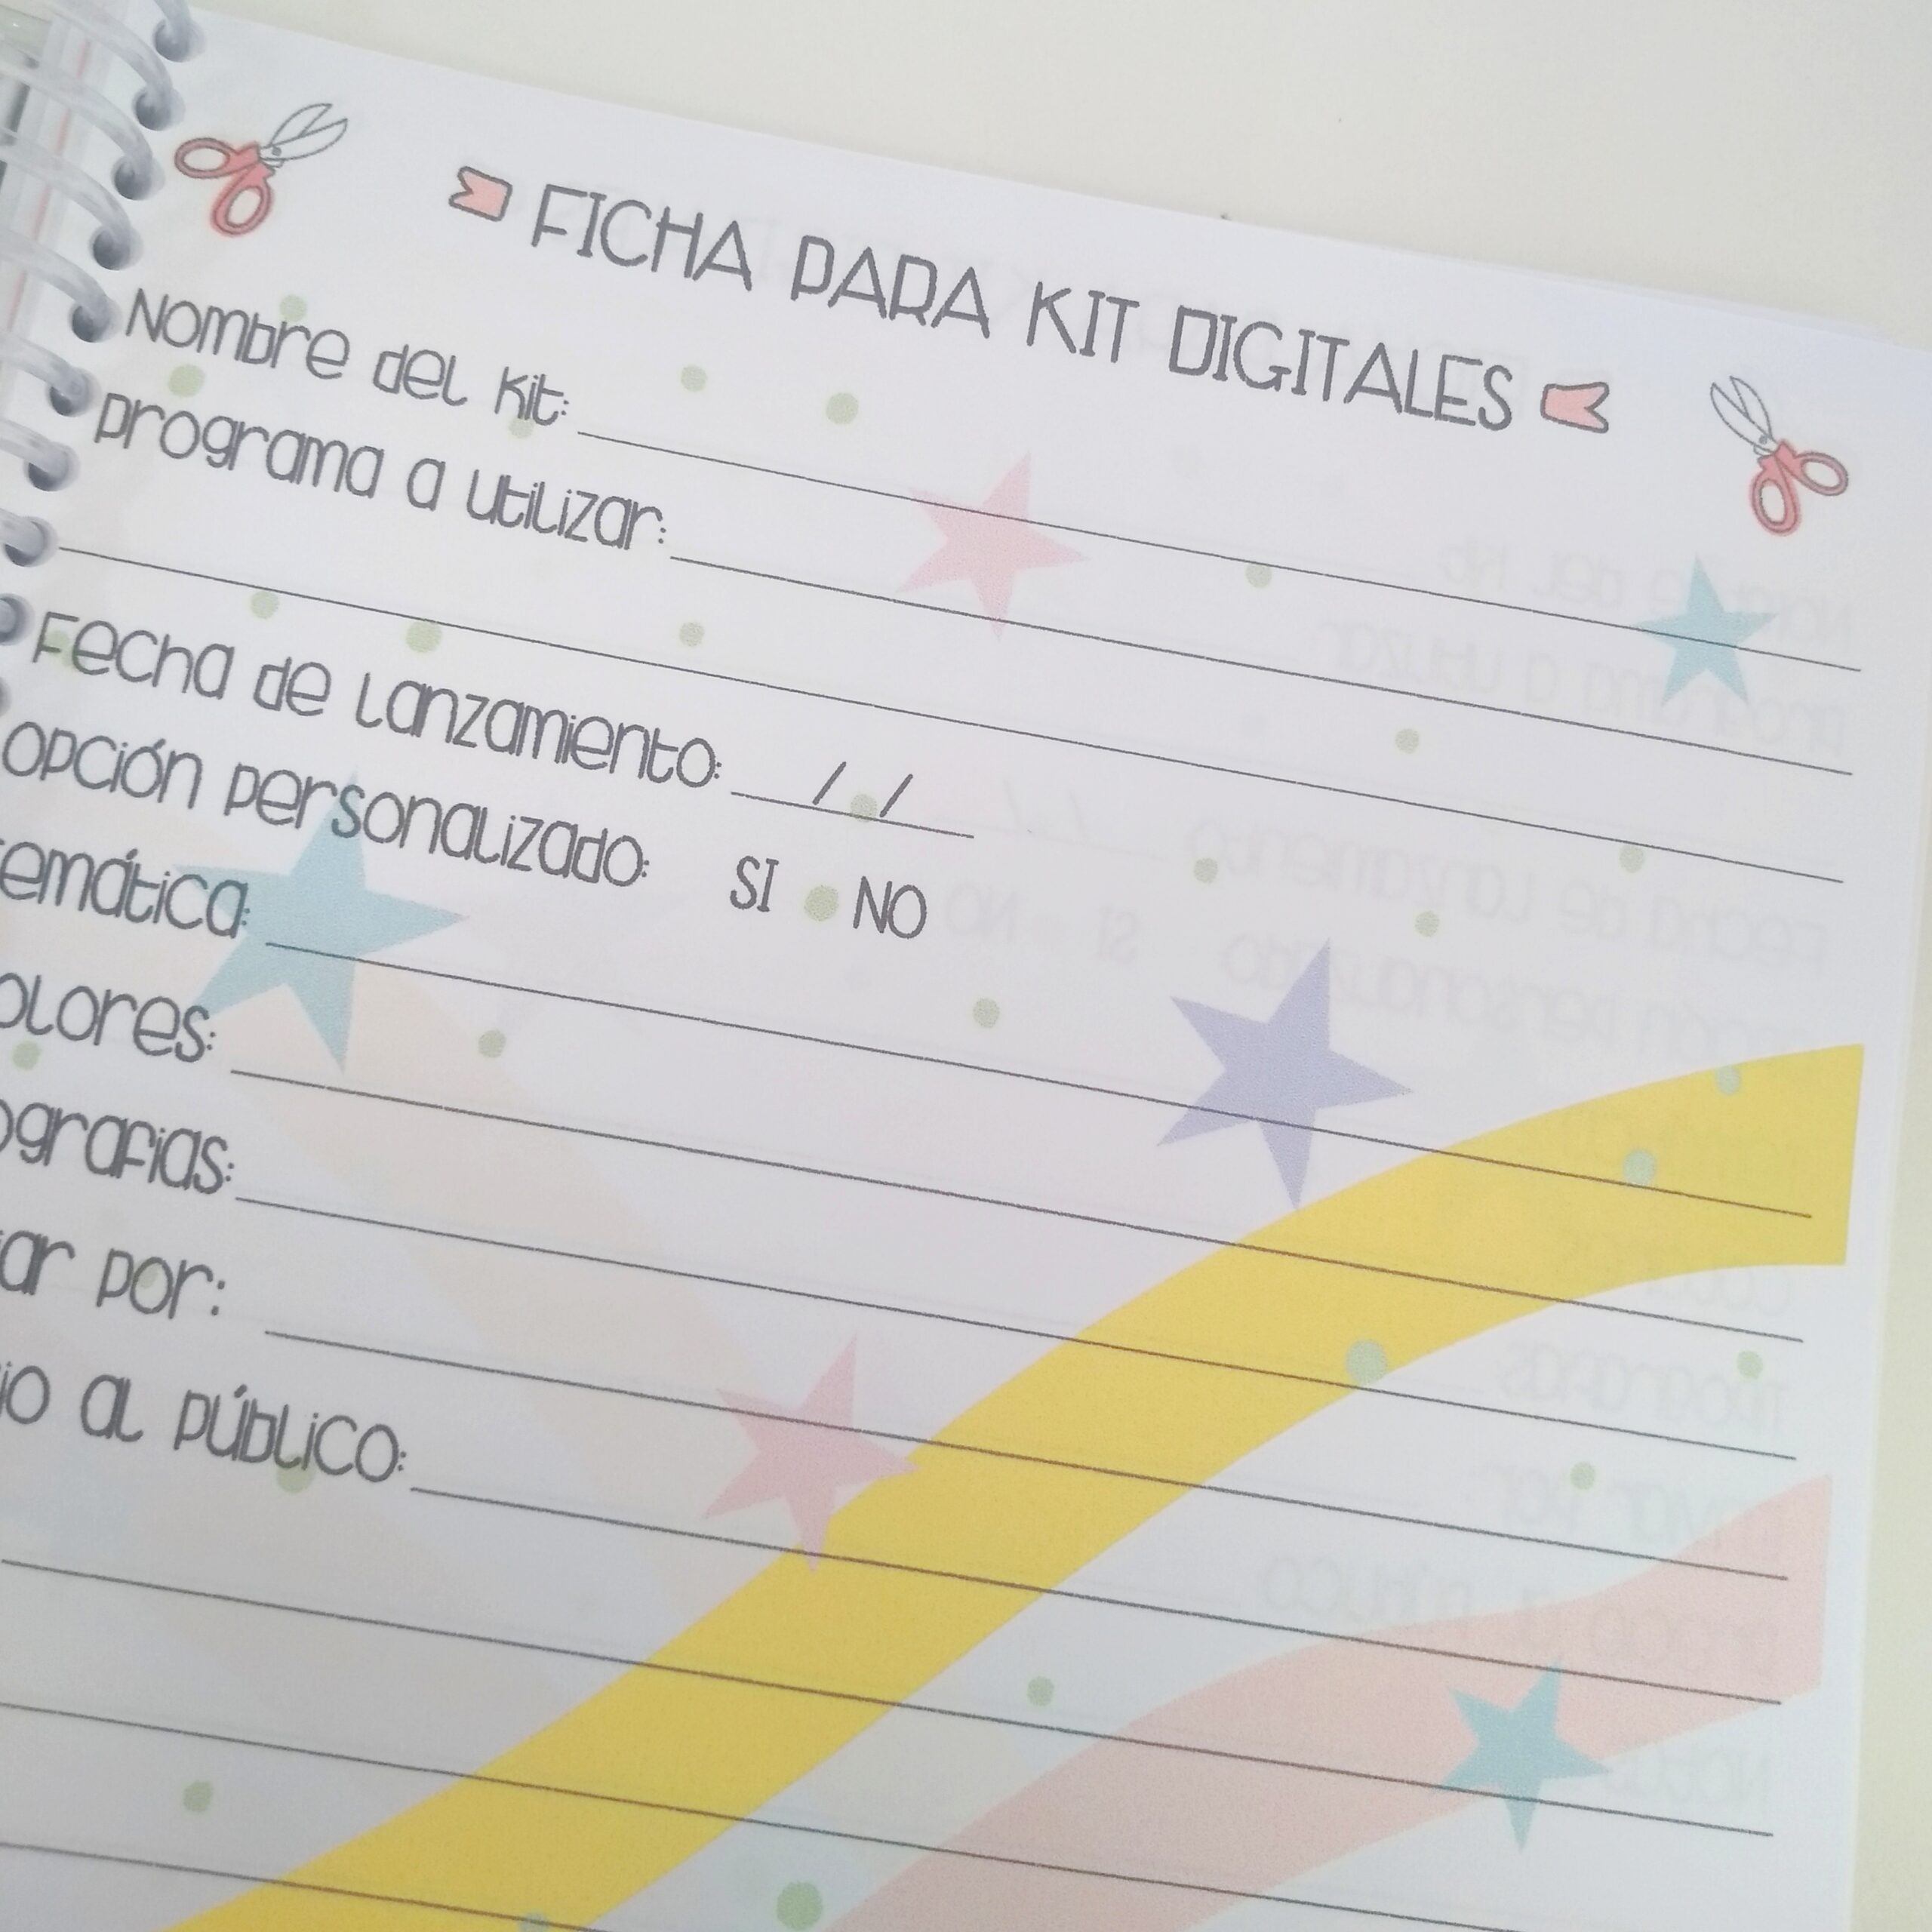 FICHA PARA KIT DIGITALES
Nombre del Kit:
programa a utilizar:
Fecha de Lanzamiento: / /
opción personalizado: SI NO
emática:
olores:
ografias:
ar por:
io al público: